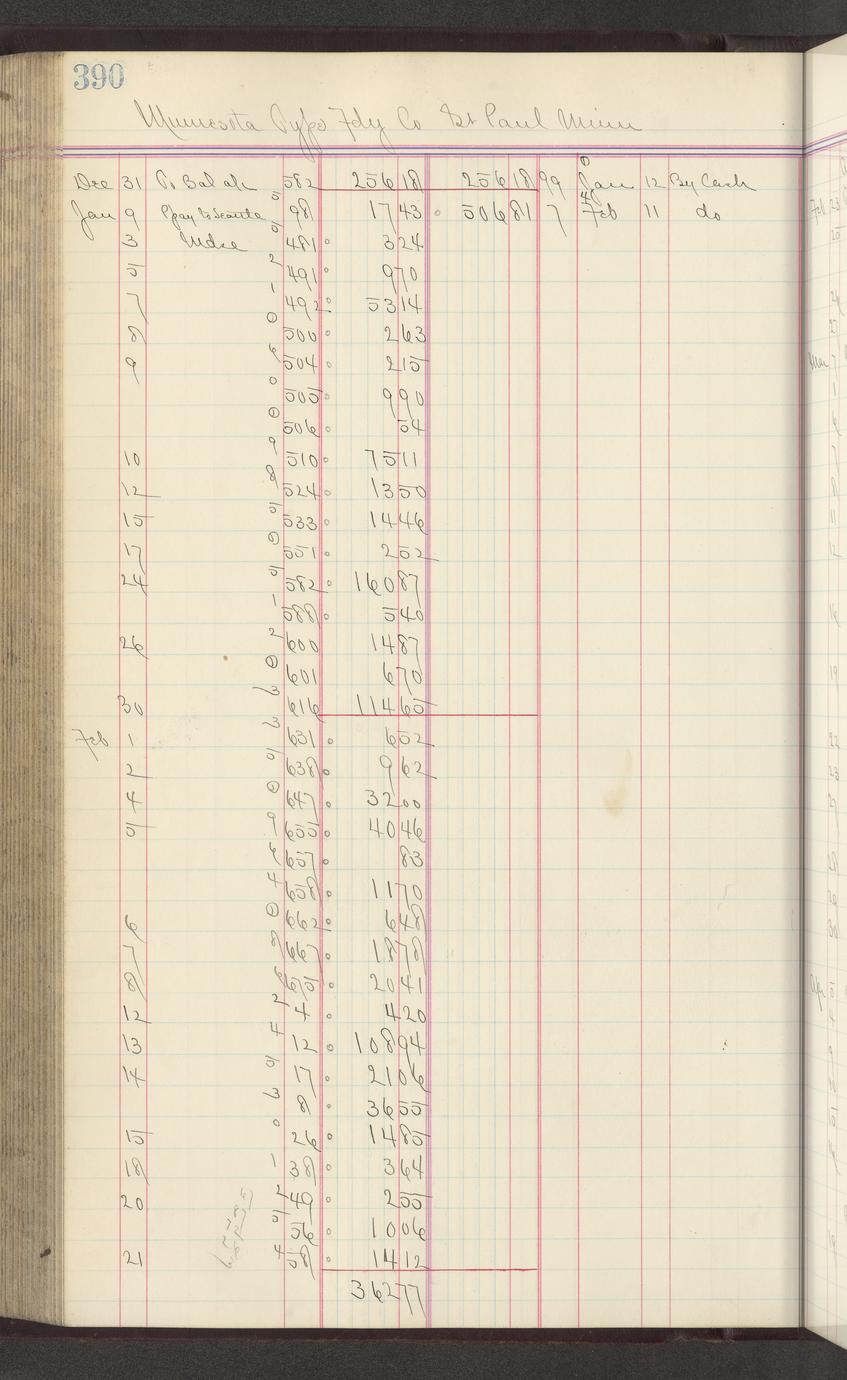 390
Minnesota Type Fdy Co St Paul Minn
Dec 31 To Bal 582 256 18 256 18 99 Jan 12 By Cash
Jan 9 98 17 43 506 81 7 Feb 11 do
3 Mdse 481 3 24
5 491 9 70
7 492 53 14
8 500 2 63
9 504 2 15
505 9 90
506 54
10 510 75 11
12 524 13 50
15 533 14 46
17 551 2 52
24 582 160 87
588 5 40
26 600 14 87
601 6 70
30 616 114 65
Feb 1 631 6 52
2 638 9 62
4 647 32 00
5 655 40 46
657 83
658 11 70
6 662 6 48
7 667 18 78
8 675 20 41
12 4 4 20
13 12 108 94
14 17 21 06
8 36 55
15 26 14 85
18 38 3 64
20 49 2 55
56 10 06
21 58 14 12
362 77